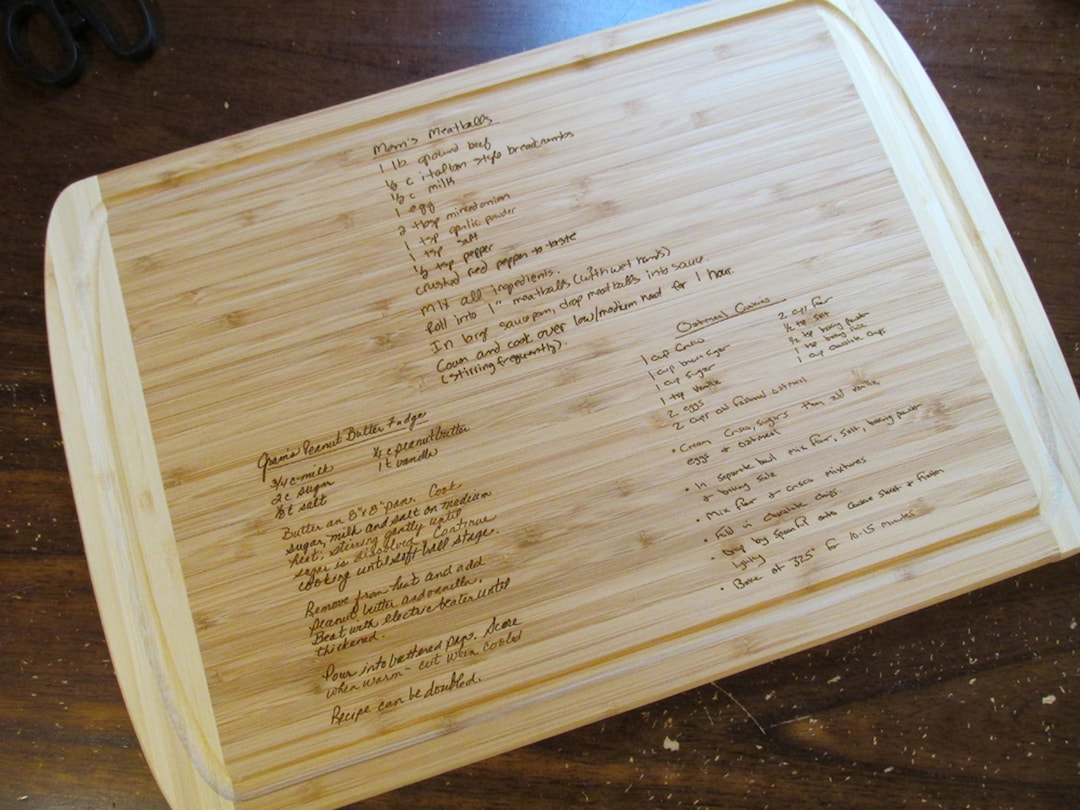 Mom's Meatballs
1 lb. ground beef
1/2 c italian style breadcrumbs
1/2 c milk
1 egg
2 tbsp minced onion
1 tsp garlic powder
1 tsp salt
1/2 tsp pepper
crushed red pepper to taste
Mix all ingredients.
Roll into 1" meatballs (with wet hands)
In large saucepan, drop meatballs into sauce.
Cover and cook over low/medium heat for 1 hour.
(stirring frequently).
Gram's Peanut Butter Fudge
3/4 c milk 1/2 c peanut butter
2 c sugar 1 t vanilla
1/8 t salt
Butter an 8"x8" pans. Cook
sugar, milk and salt on medium
heat, stirring gently until
sugar is dissolved. Continue
cooking until soft ball stage.
Remove from heat and add
peanut butter and vanilla.
Beat with electric beater until
thickened.
Pour into buttered pans. Score
when warm - cut when cooled
Recipe can be doubled.
Oatmeal Cookies
1 cup Crisco 2 cups flour
1 cup brown sugar 1/2 tsp salt
1 cup sugar 1/2 tsp baking powder
1 tsp vanilla 1 tsp baking soda
2 eggs 1 cup chocolate chips
2 cups old fashioned oatmeal
• Cream Crisco, sugars then add vanilla
eggs + oatmeal
• In separate bowl mix flour, salt, baking powder
+ baking soda
• Mix flour + Crisco mixtures
• Fold in chocolate chips
• Drop by spoonful onto cookie sheet + flatten
lightly
• Bake at 325° for 10-15 minutes